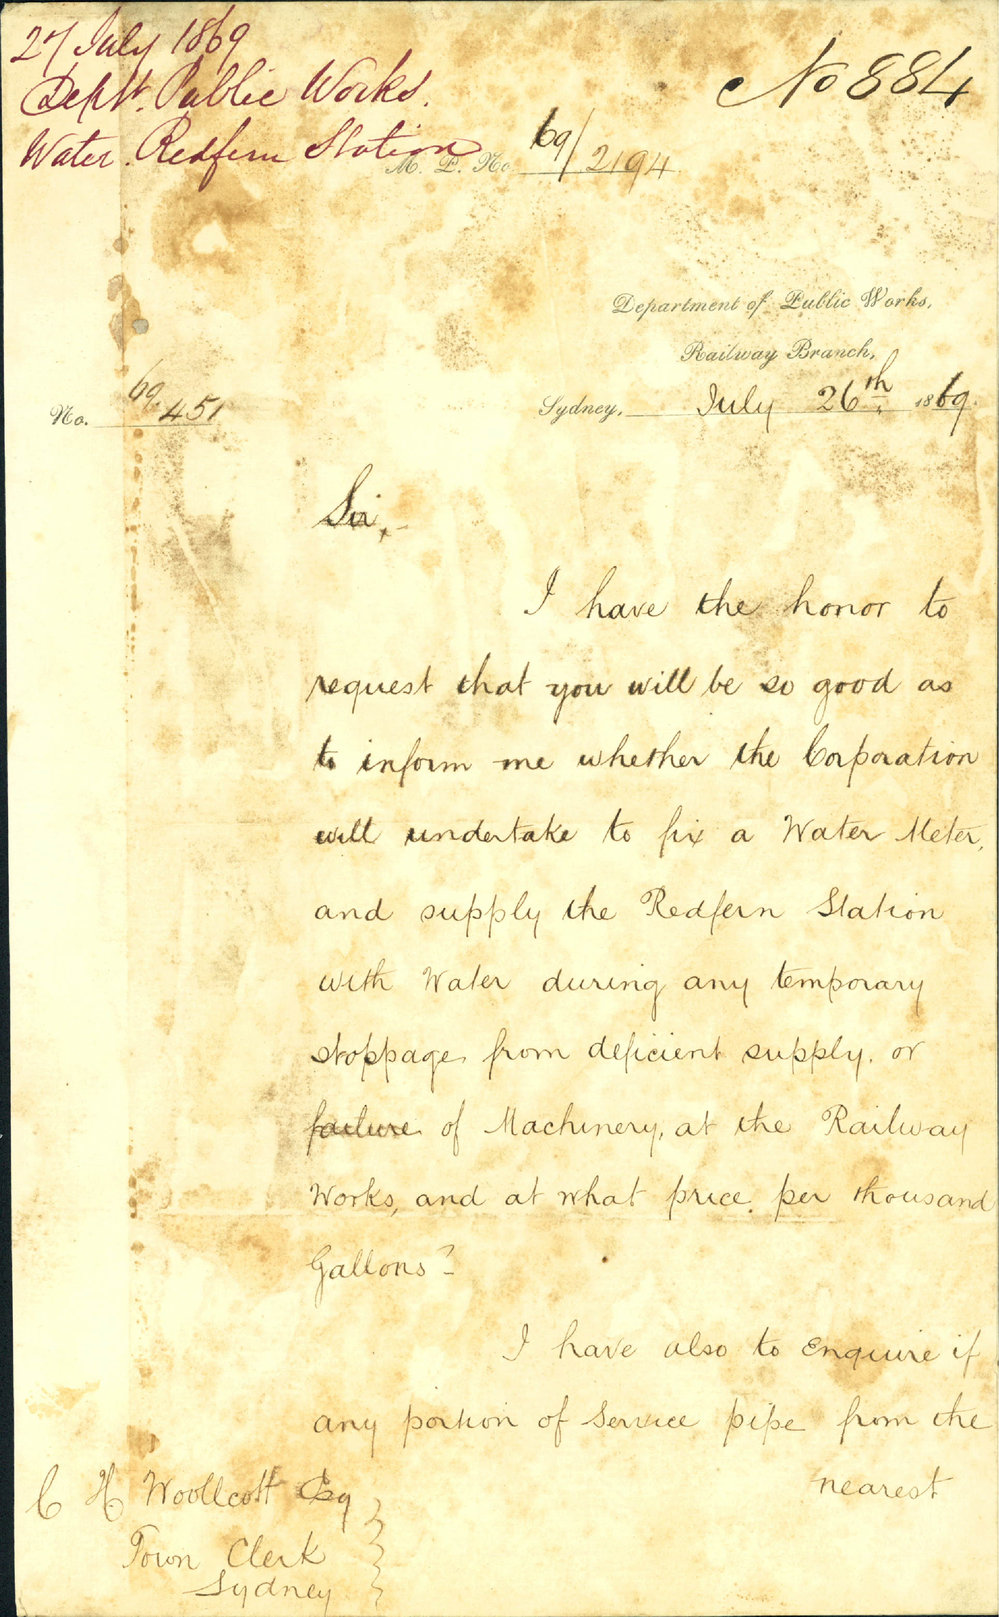 27 July 1869
Dept. Public Works.
Water. Redfern Station
No 884
M. P. No 69/2194
Department of Public Works,
Railway Branch,
No. 69.451
Sydney, July 26th. 1869.
Sir,
I have the honor to
request that you will be so good as
to inform me whether the Corporation
will undertake to fix a Water Meter,
and supply the Redfern Station
with Water during any temporary
stoppage from deficient supply, or
failure of Machinery, at the Railway
Works, and at what price per thousand
Gallons?
I have also to enquire if
any portion of Service pipe from the
nearest
C H Woollcott Esq
Town Clerk
Sydney